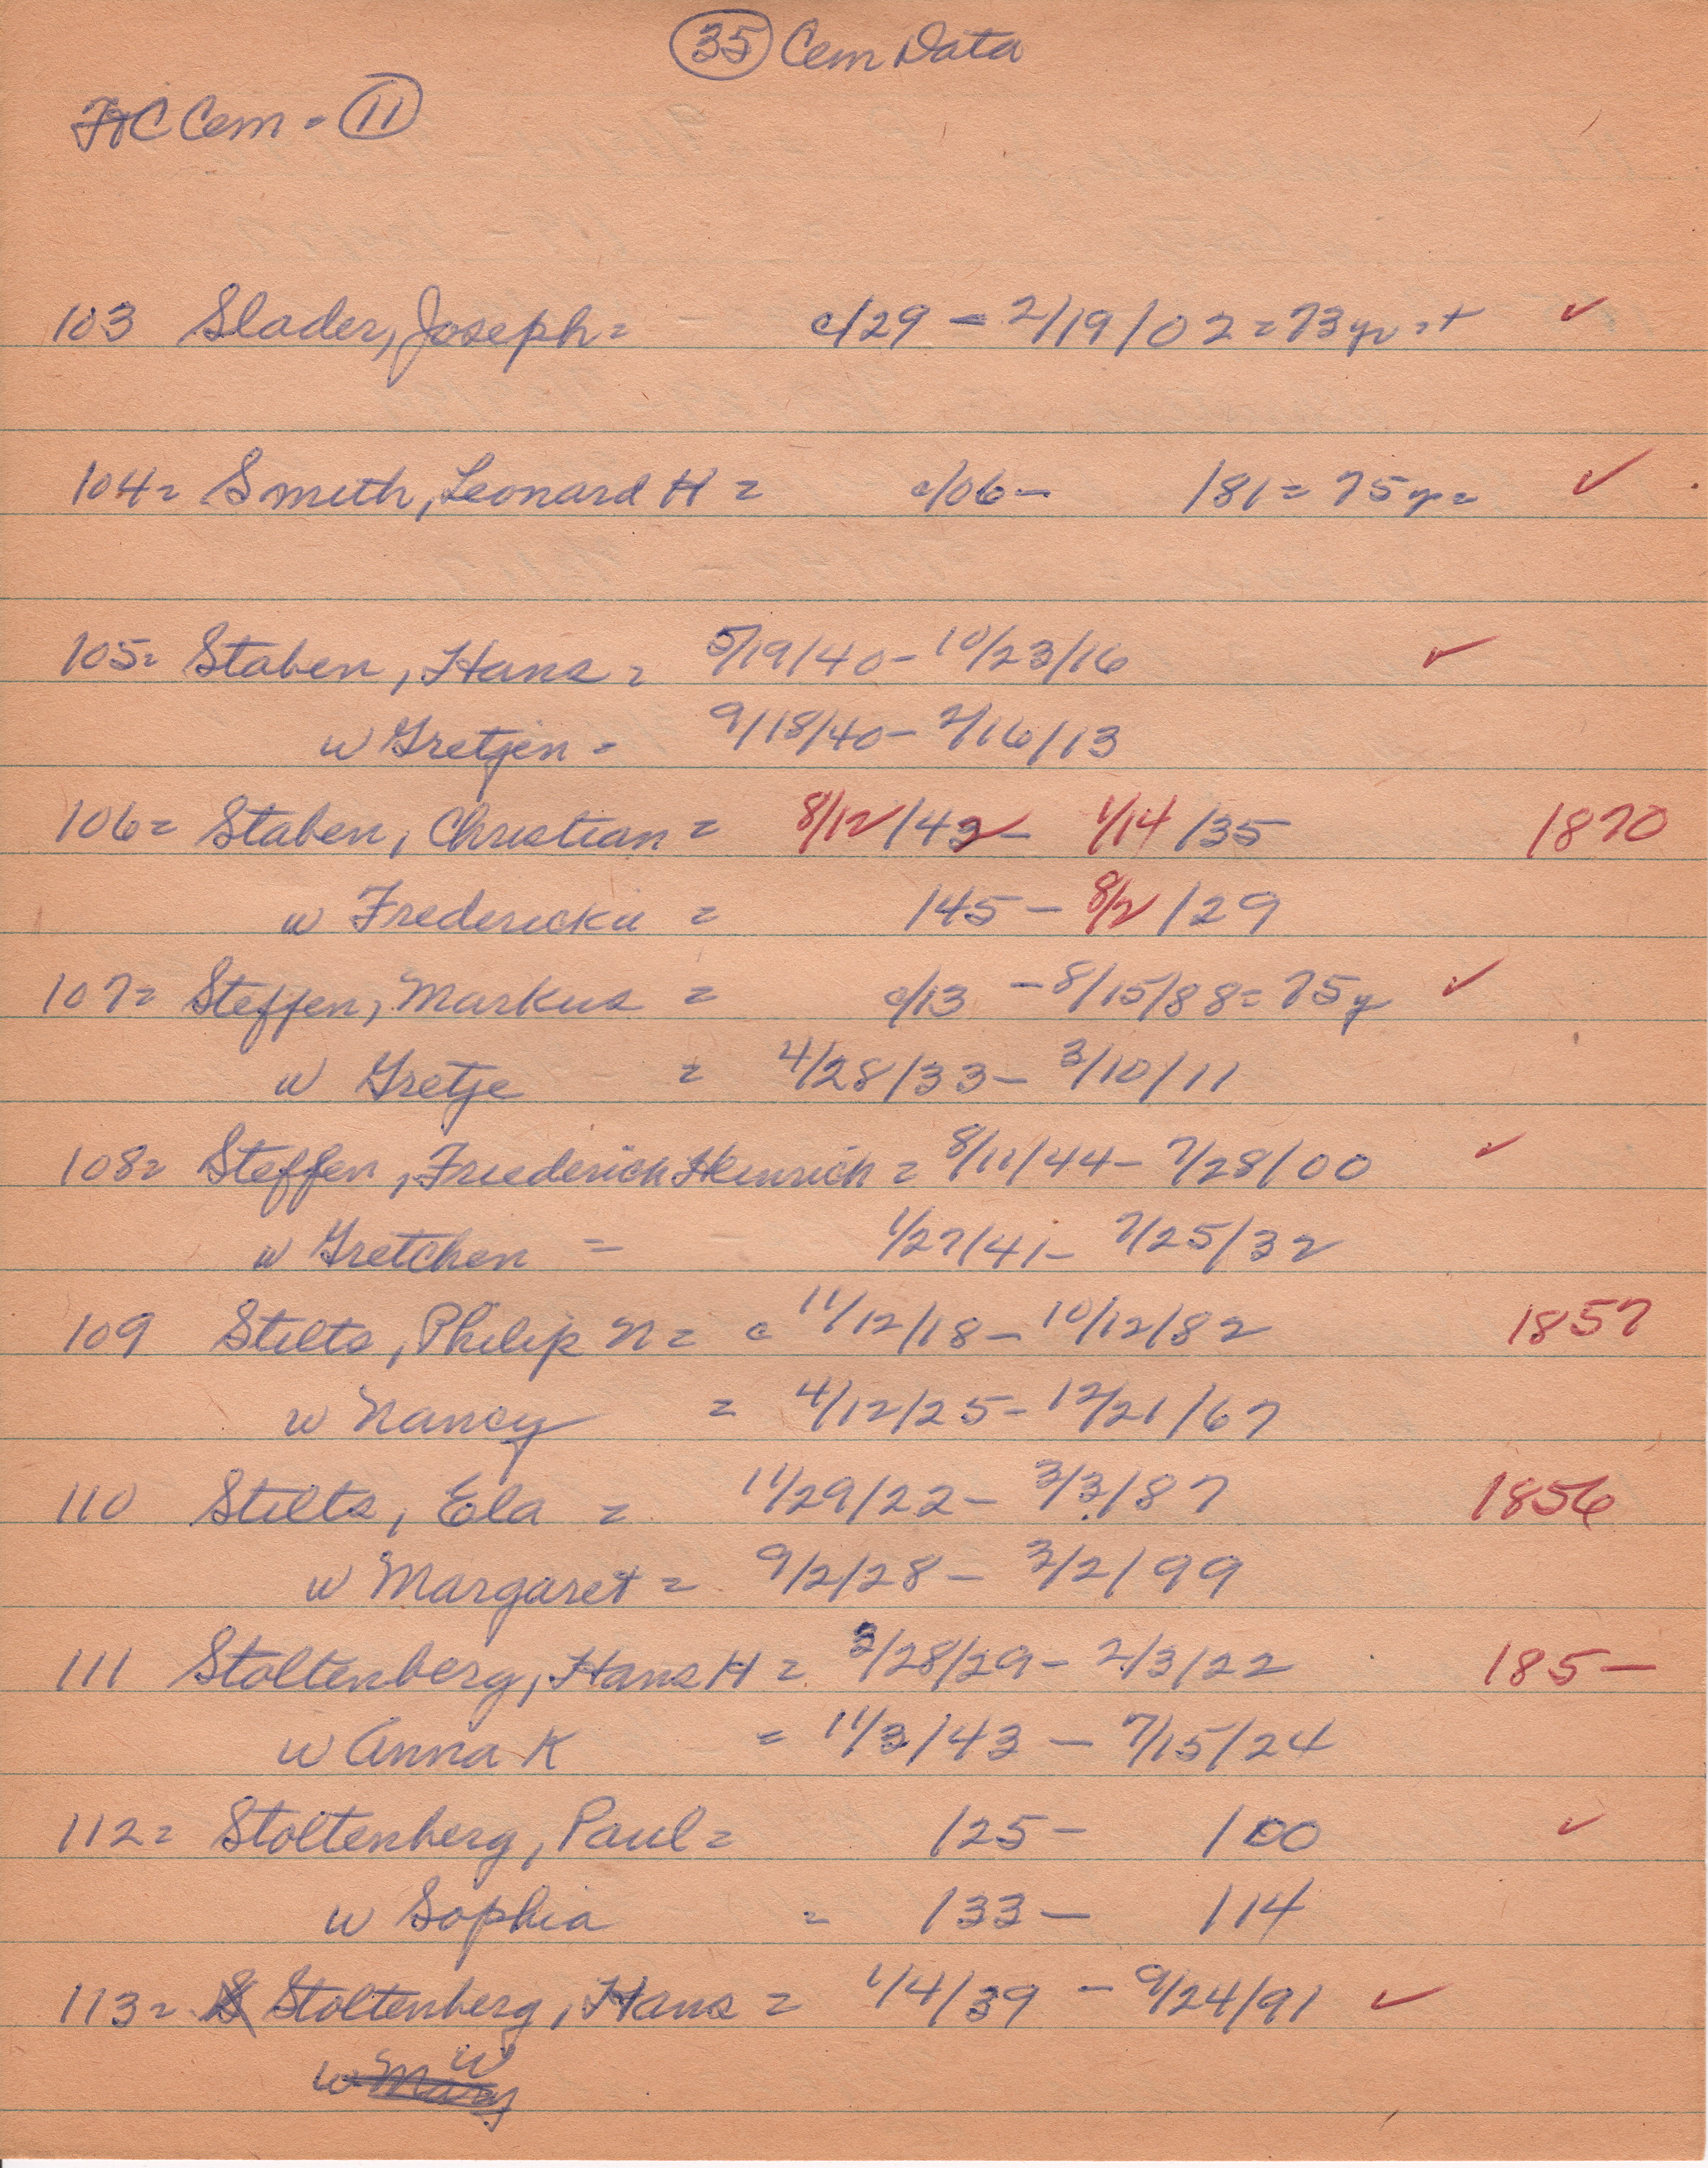 35 Cem Data
Cem - 11
103 Slader, Joseph = c/29 - 2/19/02 = 73yr = + ✓
104 = Smith, Leonard H = c/06 - /81 = 75yr = ✓
105 = Staben, Hans = 5/19/40 - 10/23/16 ✓
w Gretjen = 9/18/40 - 2/16/13
106 = Staben, Christian = 8/12/42 - 1/14/35 1870
w Fredericka = /45 - 8/2/29
107 = Steffen, Markus = c/13 - 8/15/88 = 75y ✓
w Gretje = 4/28/33 - 3/10/11
108 = Steffen, Friederich Heinrich = 8/11/44 - 7/28/00 ✓
w Gretchen = 1/27/41 - 7/25/32
109 Stilts, Philip N = c 11/12/18 - 10/12/82 1857
w Nancy = 4/12/25 - 12/21/67
110 Stilts, Ela = 11/29/22 - 3/3/87 1856
w Margaret = 9/2/28 - 3/2/99
111 Stoltenberg, Hans H = 3/28/29 - 2/3/22 185—
w Anna K = 11/3/43 - 7/15/24
112 = Stoltenberg, Paul = /25 - /00 ✓
w Sophia = /33 - /14
113 = Stoltenberg, Hans = 1/4/39 - 9/24/91 ✓
w Mary